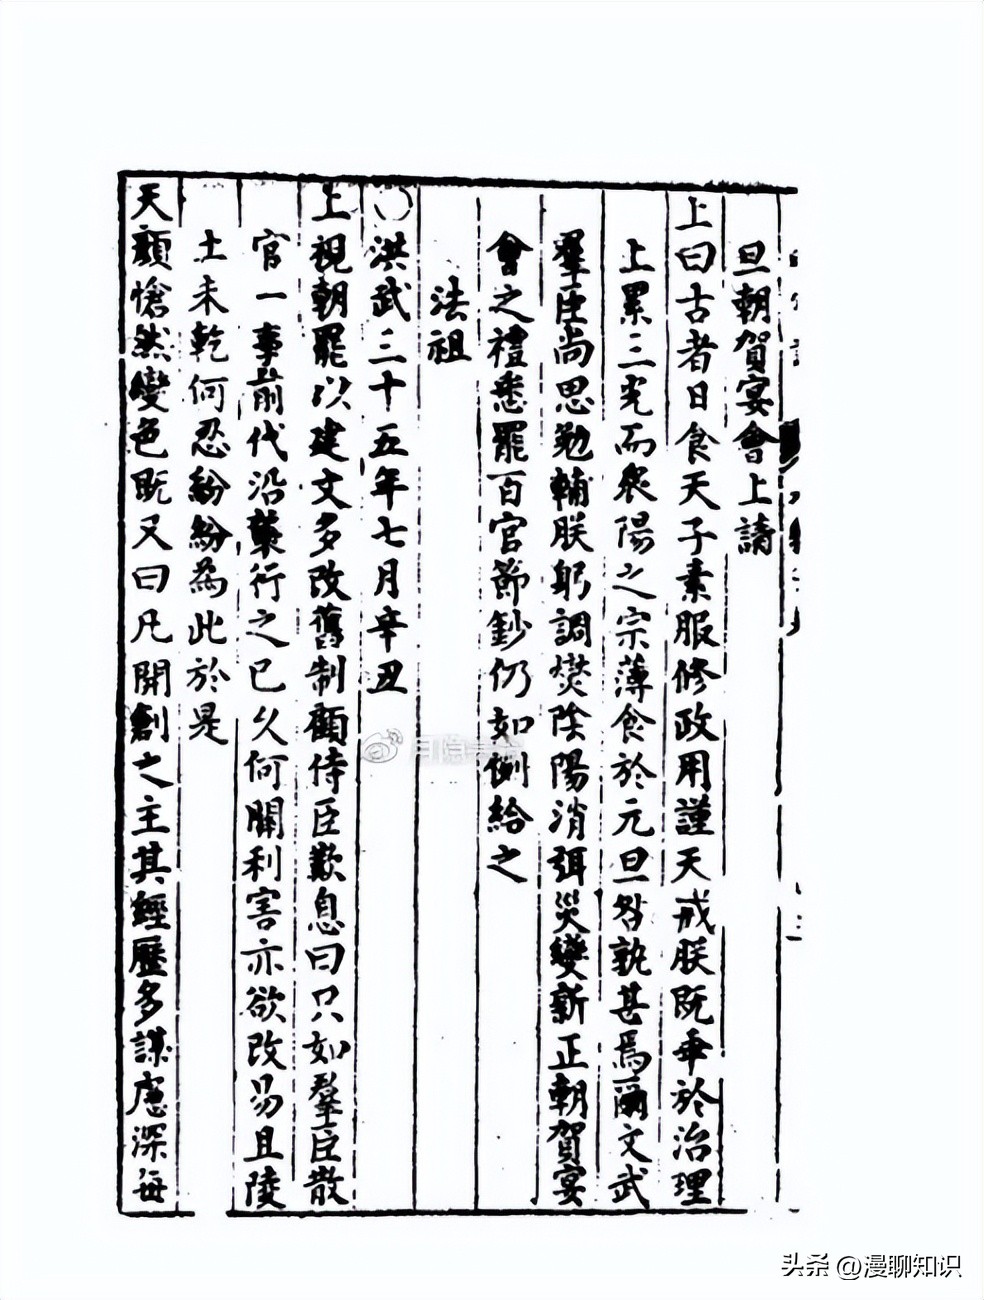 旦朝賀宴會上請
上曰古者日食天子素服修政用謹天戒朕既乖於治理
上累三光而衆陽之宗薄食於元旦咎孰甚焉爾文武
羣臣尚思勉輔朕躬調燮陰陽消弭災變新正朝賀宴
會之禮悉罷百官節鈔仍如例給之
法祖
○洪武三十五年七月辛丑
上視朝罷以建文多改舊制顧侍臣歎息曰只如羣臣散
官一事前代沿襲行之已久何關利害亦欲改易且陵
土未乾何忍紛紛為此於是
天顏愴然變色既又曰凡開創之主其經歷多謀慮深每
头条 @漫聊知识